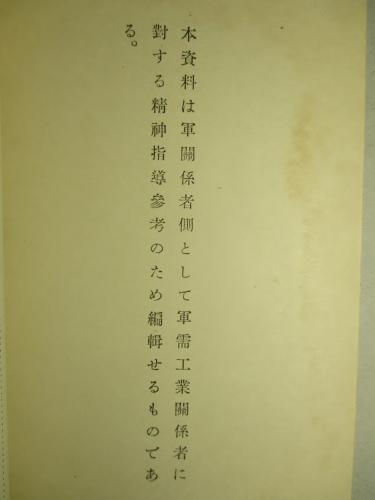 本資料は軍關係者側として軍需工業關係者に
對する精神指導參考のため編輯せるものであ
る。